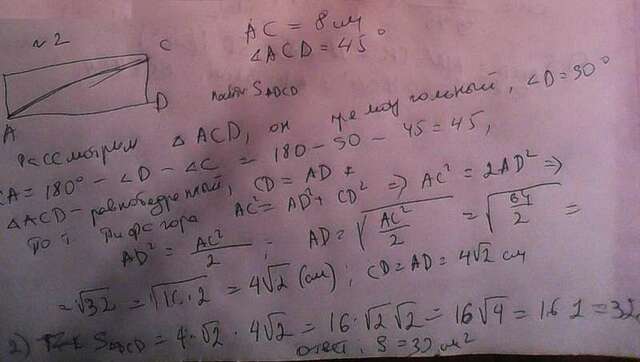 №2
AC = 8 см
∠ACD = 45°
C
D
A
найти S ABCD
Рассмотрим △ACD, он прямоугольный, ∠D=90°
∠A = 180° - ∠D - ∠C = 180 - 90 - 45 = 45,
△ACD - равнобедренный, CD = AD
По т. Пифагора AC² = AD² + CD² ⇒ AC² = 2AD² ⇒
AD² = AC²/2 ; AD = √(AC²/2) = √(64/2) =
= √32 = √16·2 = 4√2 (см) ; CD = AD = 4√2 см
2) S ABCD = 4·√2 · 4√2 = 16·√2√2 = 16√4 = 16·2 = 32
ответ: S = 32 см²